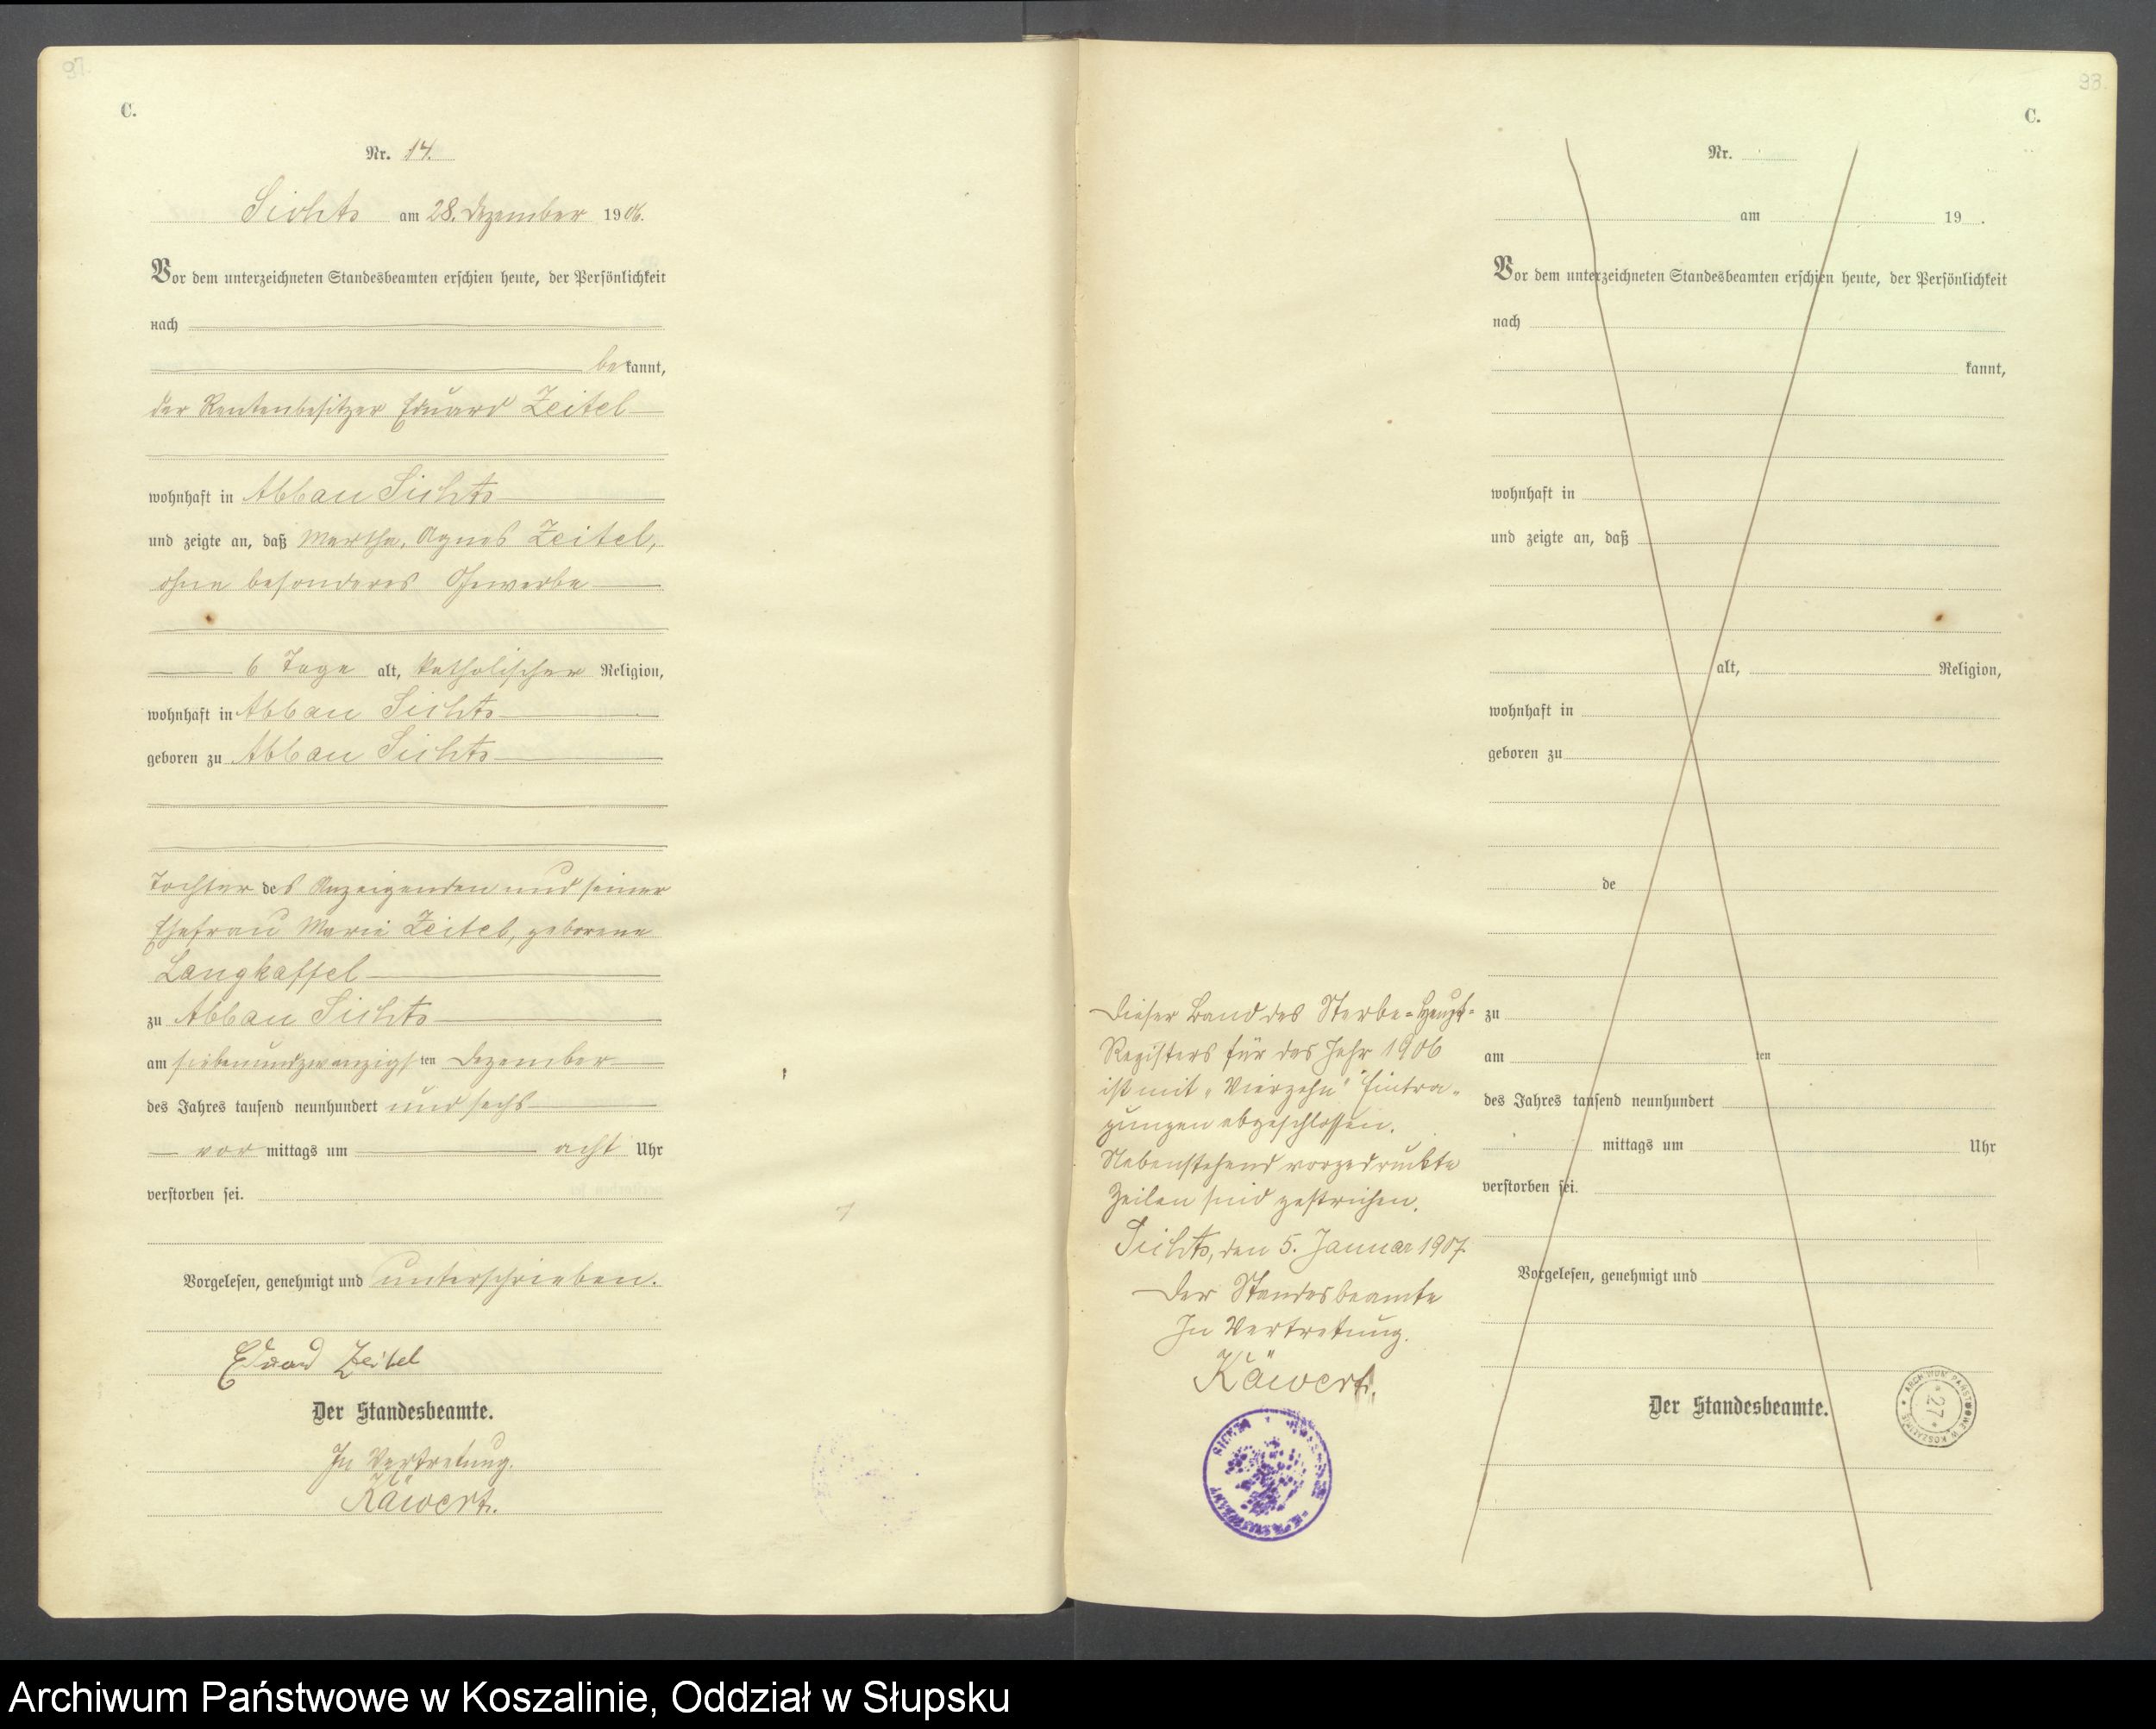 97.
C.
Nr. 14.
Sichts am 28. Dezember 1906.
Vor dem unterzeichneten Standesbeamten erschien heute, der Persönlichkeit
nach
bekannt,
der Rentenbesitzer Eduard Zeitel
wohnhaft in Abbau Sichts
und zeigte an, daß Martha, Agnes Zeitel,
ohne besonderes Gewerbe
6 Tage alt, katholischer Religion,
wohnhaft in Abbau Sichts
geboren zu Abbau Sichts
Tochter des Anzeigenden und seiner
Ehefrau Marie Zeitel, geborene
Langkaffel
zu Abbau Sichts
am siebenundzwanzigsten Dezember
des Jahres tausend neunhundert und sechs
vor mittags um acht Uhr
verstorben sei.
Vorgelesen, genehmigt und unterschrieben.
Eduard Zeitel
Der Standesbeamte.
In Vertretung.
Käwert.
93.
C.
Nr.
am 19 .
Vor dem unterzeichneten Standesbeamten erschien heute, der Persönlichkeit
nach
kannt,
wohnhaft in
und zeigte an, daß
alt, Religion,
wohnhaft in
geboren zu
de
zu
am ten
des Jahres tausend neunhundert
mittags um Uhr
verstorben sei.
Vorgelesen, genehmigt und
Der Standesbeamte.
Dieser Band des Sterbe-Haupt-
Registers für das Jahr 1906
ist mit "Vierzehn" Eintra-
gungen abgeschlossen.
Nebenstehend vorgedruckte
Zeilen sind gestrichen.
Sichts, den 5. Januar 1907.
Der Standesbeamte
In Vertretung.
Käwert.
ARCHIWUM PAŃSTWOWE W KOSZALINIE
* 27 *
Archiwum Państwowe w Koszalinie, Oddział w Słupsku